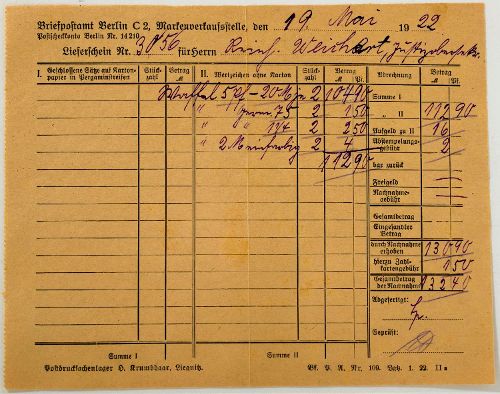 Briefpostamt Berlin C 2, Markenverkaufsstelle, den 19. Mai 1922
Postscheckkonto Berlin Nr. 14210
Lieferschein Nr. 3056 für Herrn
I. Geschlossene Sätze auf Kartonpapier in Pergaminstreifen Stückzahl Betrag M Pf. II. Wertzeichen ohne Karton Stückzahl Betrag M Pf. Abrechnung Betrag M Pf.
2 104 90 Summe I
75 2 1 50 " II 112 90
2 2 50 Aufgeld zu II 16
" 2 M 2 4 Abstempelungsgebühr 2
112 90 bar zurück
Freigeld
Nachnahmegebühr
Gesamtbetrag
Eingesandter Betrag
durch Nachnahme erhoben 130 90
hierzu Zahlkartengebühr 1 50
Gesamtbetrag der Nachnahme 132 40
Abgefertigt:
Geprüft:
Summe I Summe II
Postdrucksachenlager H. Krumbhaar, Liegnitz. Bf. P. A. Nr. 109. 1. 22. II